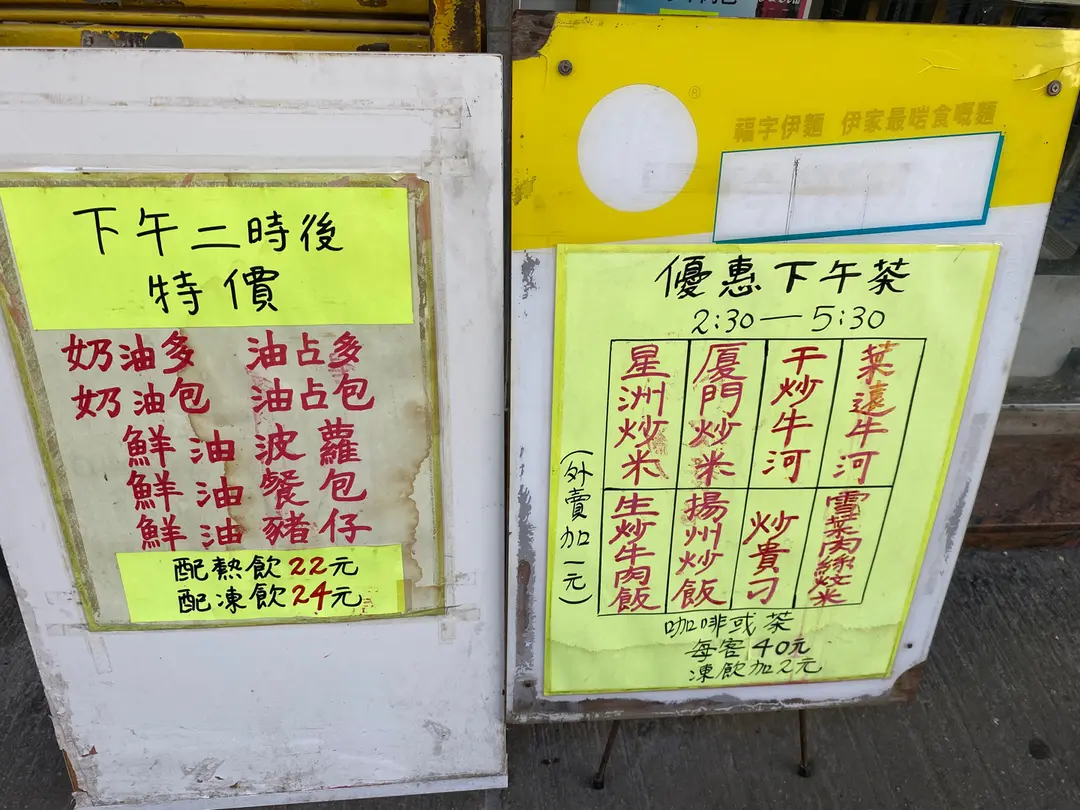 下午二時後
特價
奶油多 油占多
奶油包 油占包
鮮油波蘿
鮮油餐包
鮮油豬仔
配熱飲22元
配凍飲24元
®
福字伊麵 伊家最啱食嘅麵
優惠下午茶
2:30—5:30
星洲炒米
厦門炒米
干炒牛河
菜遠牛河
生炒牛肉飯
揚州炒飯
炒貴刁
雪菜肉絲炆米
(外賣加一元)
咖啡或茶
每客40元
凍飲加2元